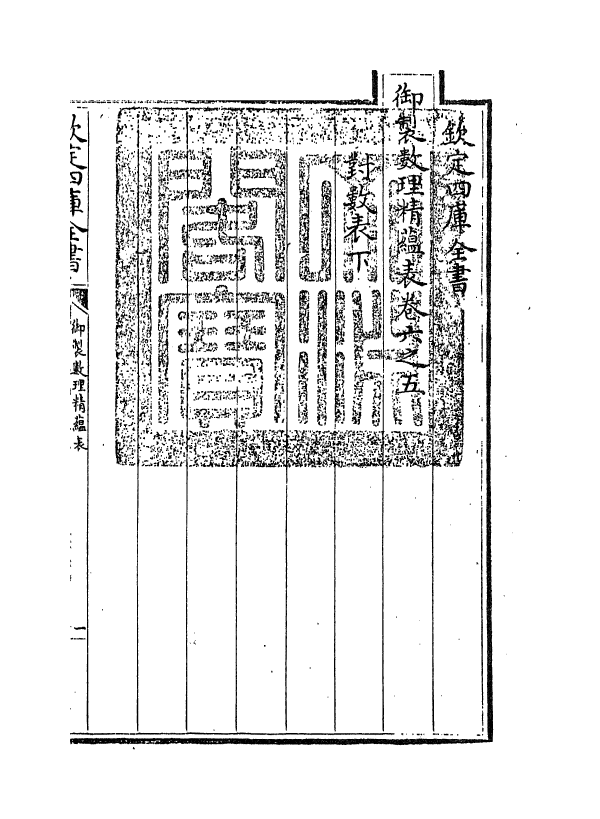 欽定四庫全書
御製數理精藴表卷六之五
對數表下
欽定四庫全書
御製數理精藴表
一